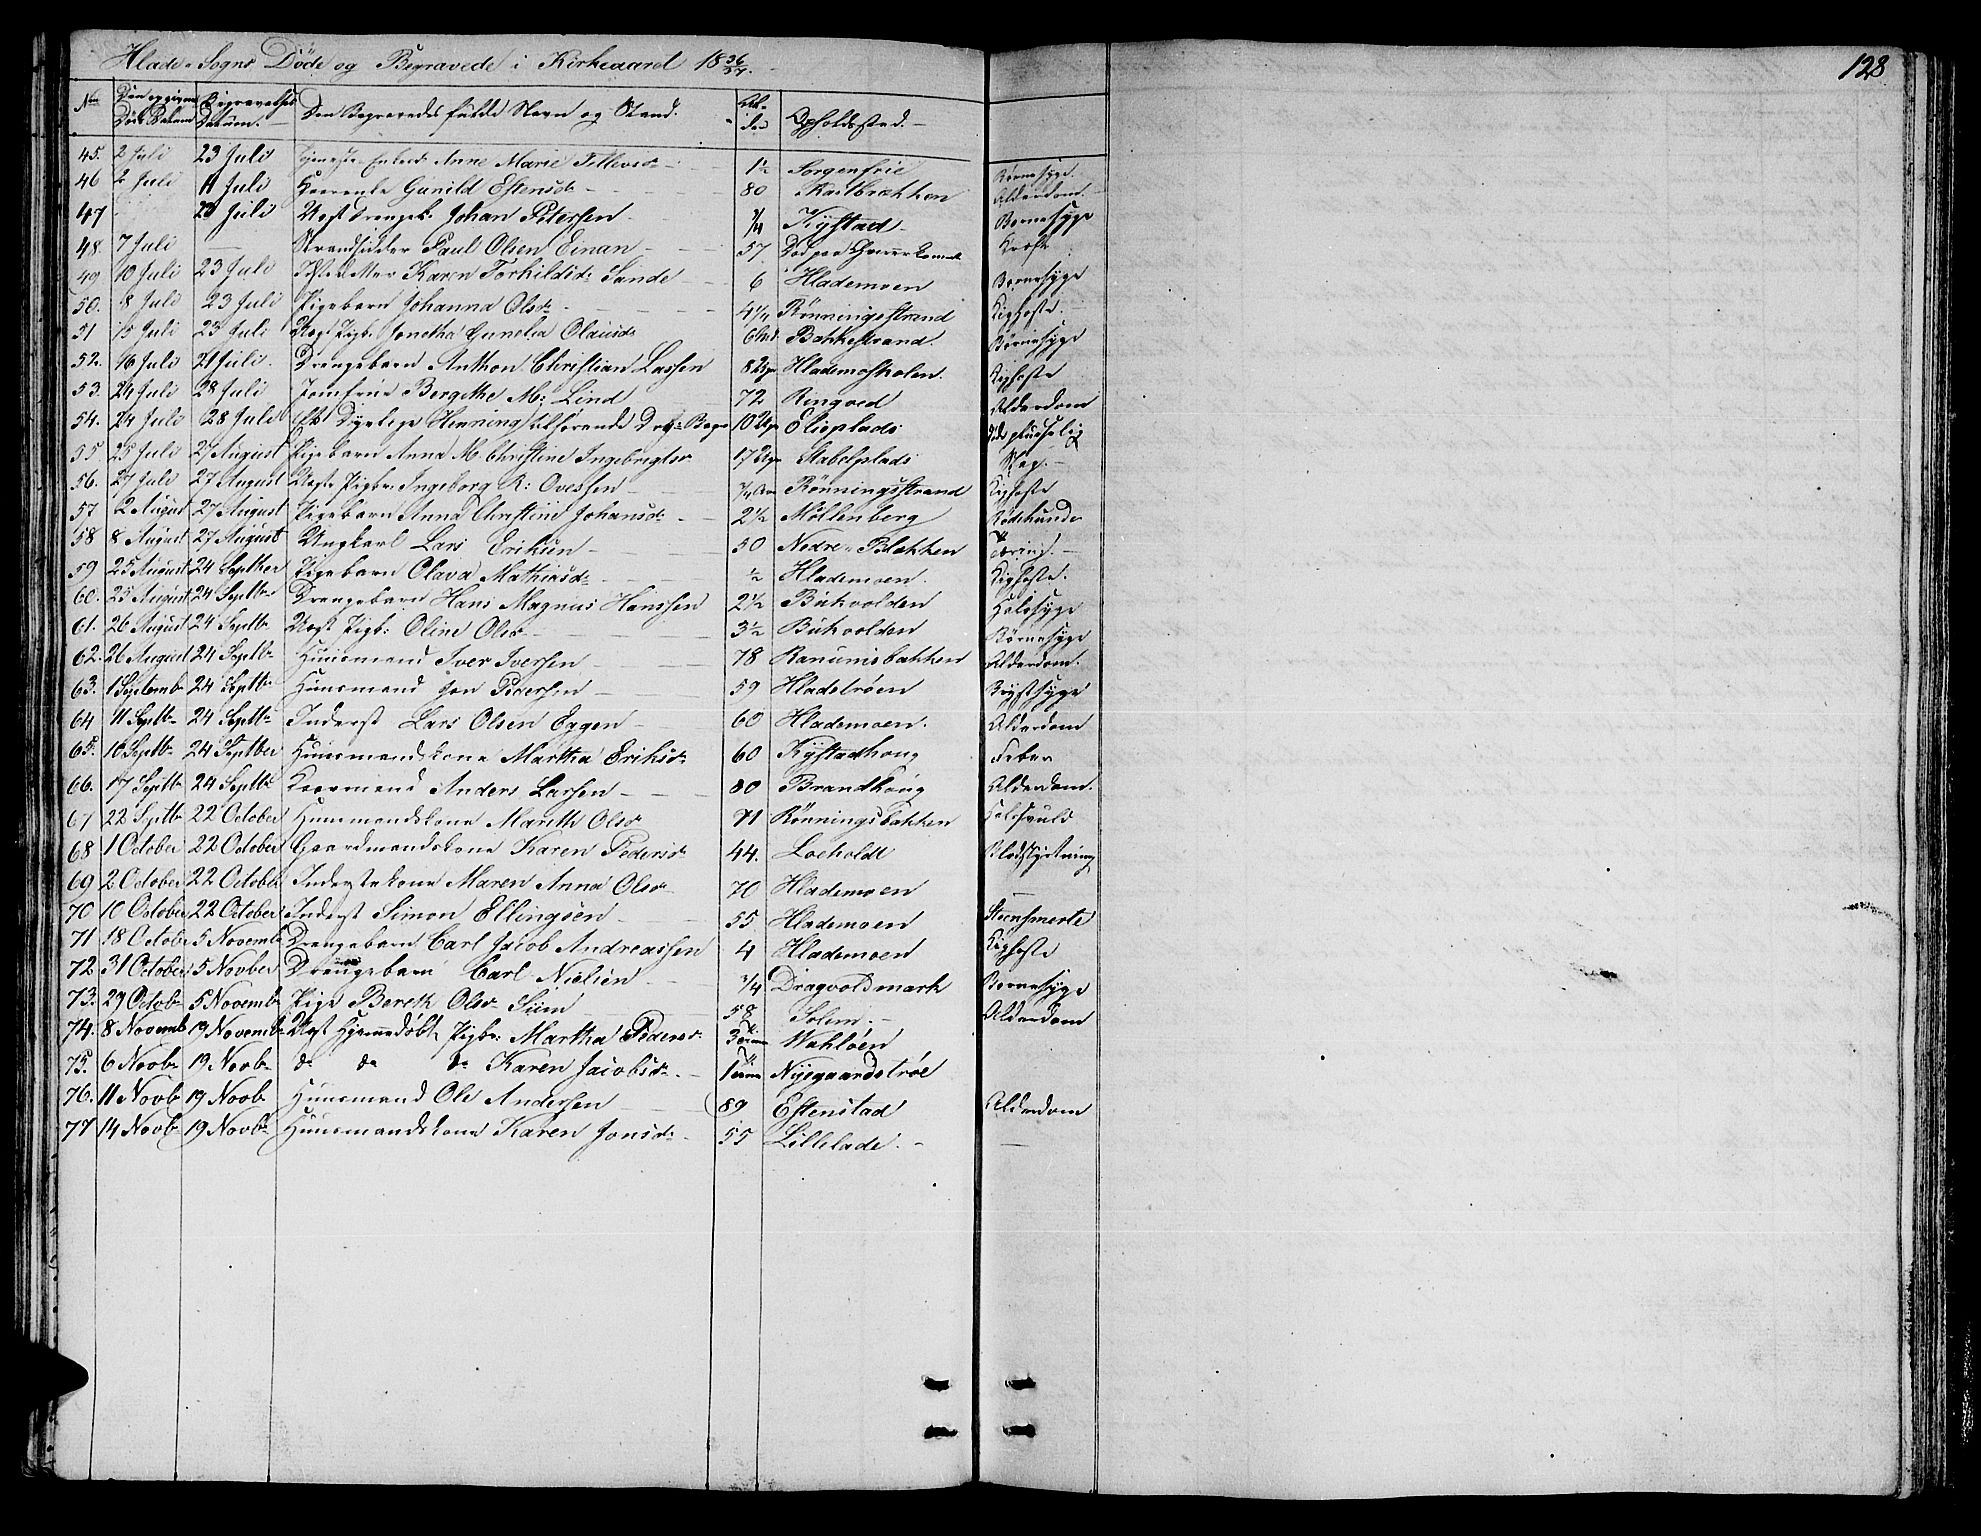 Hlade Sogns Döde og Begravede i Kirkeaaret 18 36/37.
128
No Den opgivne Döds Datum Begravelses Datum. Den Begravedes fulde Navn og Stand. Alder Opholdssted.
45. 2 Juli 23 Juli Enkes Anne Marie 1½ Sorgenfrie Börnesyge.
46 2 Juli 11 Juli Gunild Estensdr 80 Alderdom.
47 23 Juli Johan Petersen ¾ Kystad Börnesyge
48. 7 Juli — Strandsidder Paul Olsen Einan 57. Död paa
49 10 Juli 23 Juli Karen Torkildsdr Sande 6 Hlademoen Börnesyge
50. 8 Juli 23 Juli Pigebarn Johanna Olsdr 4¼ Rönningsstrand Kighoste.
51 15 Juli 23 Juli Uegt Pigb. Jonetha Gunelia Olausdr 6 Bakkestrand. Börnesyge
52. 16 Juli 21 Juli. Drengebarn Anthon Christian Lassen 8 Uger Hlademoskolen. Kighoste
53. 24 Juli 28 Juli Jomfrue Bergithe M: Lind 72 Ringved Alderdom
54. 24 Juli 28 Juli Henning 10 Uger Elieplads Död pludselig
55 25 Juli 27 August Pigebarn Anna M. Christine Ingebrigtsdr 17 Uger Stabelplads
56. 27 Juli 27 August Uegte Pigb. Ingeborg R: Ovessen Rönningsstrand Kighoste
57 2 August 27 August Pigebarn Anna Christine Johansdr 2½ Möllenberg Rödehunde
58 8 August 27 August Ungkarl Lars Eriksen 50 Nedre Blekken Tæring.
59 25 August 24 Septber Pigebarn Olava Mathiasdr ½ Hlademoen. Kighoste.
60. 25 August 24 Septbr Drengebarn Hans Magnus Hanssen 2½ Bukvolden Halssyge
61. 26 August 24 Septbr Uegt Pigb: Oline Olsdr 3½ Bukvolden Börnesyge
62. 26 August 24 Septbr Huusmand Iver Iversen 78 Ranumsbakken Alderdom.
63. 1 Septemb 24 Septbr Huusmand Jon Pedersen 59 Hladetröen Brystsyge
64 11 Septbr 24 Septbr Inderst Lars Olsen Eggen 60 Hlademoen. Alderdom
65. 10 Septbr 24 Septber Huusmandskone Martha Eriksdr 60 Kystadhoug Feber
66. 17 Septbr 24 Septbr Anders Larsen 80 Brandhoug Alderdom.
67 22 Septbr 22 October Huusmandskone Marith Olsdr 71 Rönningsbakken Halssvulst
68 1 October 22 October Gaardmandskone Karen Pedersdr 44. Loeholdt Blodstyrtning
69 2 October 22 October Inderstekone Maren Anna Olsdr 70 Hlademoen —
70 10 October 22 October Inderst Simon Ellingsen 55 Hlademoen Steensmerte
71 18 October 5 Novemb Drengebarn Carl Jacob Andreassen 4 Hlademoen Kighoste
72 31 October 5 Novber Drengebarn Carl Nielsen ¾ Dragvoldmark Börnesyge
73. 29 Octob 5 Novemb Pige Bereth Olsdr Siim 58 Solem. Alderdom
74. 8 Novemb 19 Novemb Uegt Hjemmedöbt Pigbr: Martha Pedersdr 3 Wahlöen
75. 6 Novbr 19 Novbr do do do Karen Jacobsdr. 1 Nygaardströe
76. 11 Novb 19 Novb Huusmand Ole Andersen 89 Estenstad Alderdom
77 14 Novb 19 Novbr Huusmandskone Karen Jonsdr 55 Lillelade. —